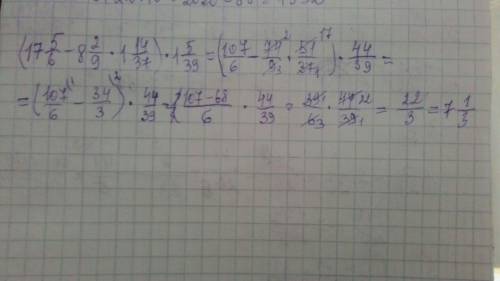 (17 5/6 - 8 2/9 · 1 14/37) · 1 5/39 = (107/6 - 74²/9₃ · 51¹⁷/37₁) · 44/39 =
= (107¹/6 - 34/3)² · 44/39 = (107-68)/6 · 44/39 = 39¹/6₃ · 44²²/39₁ = 22/3 = 7 1/3